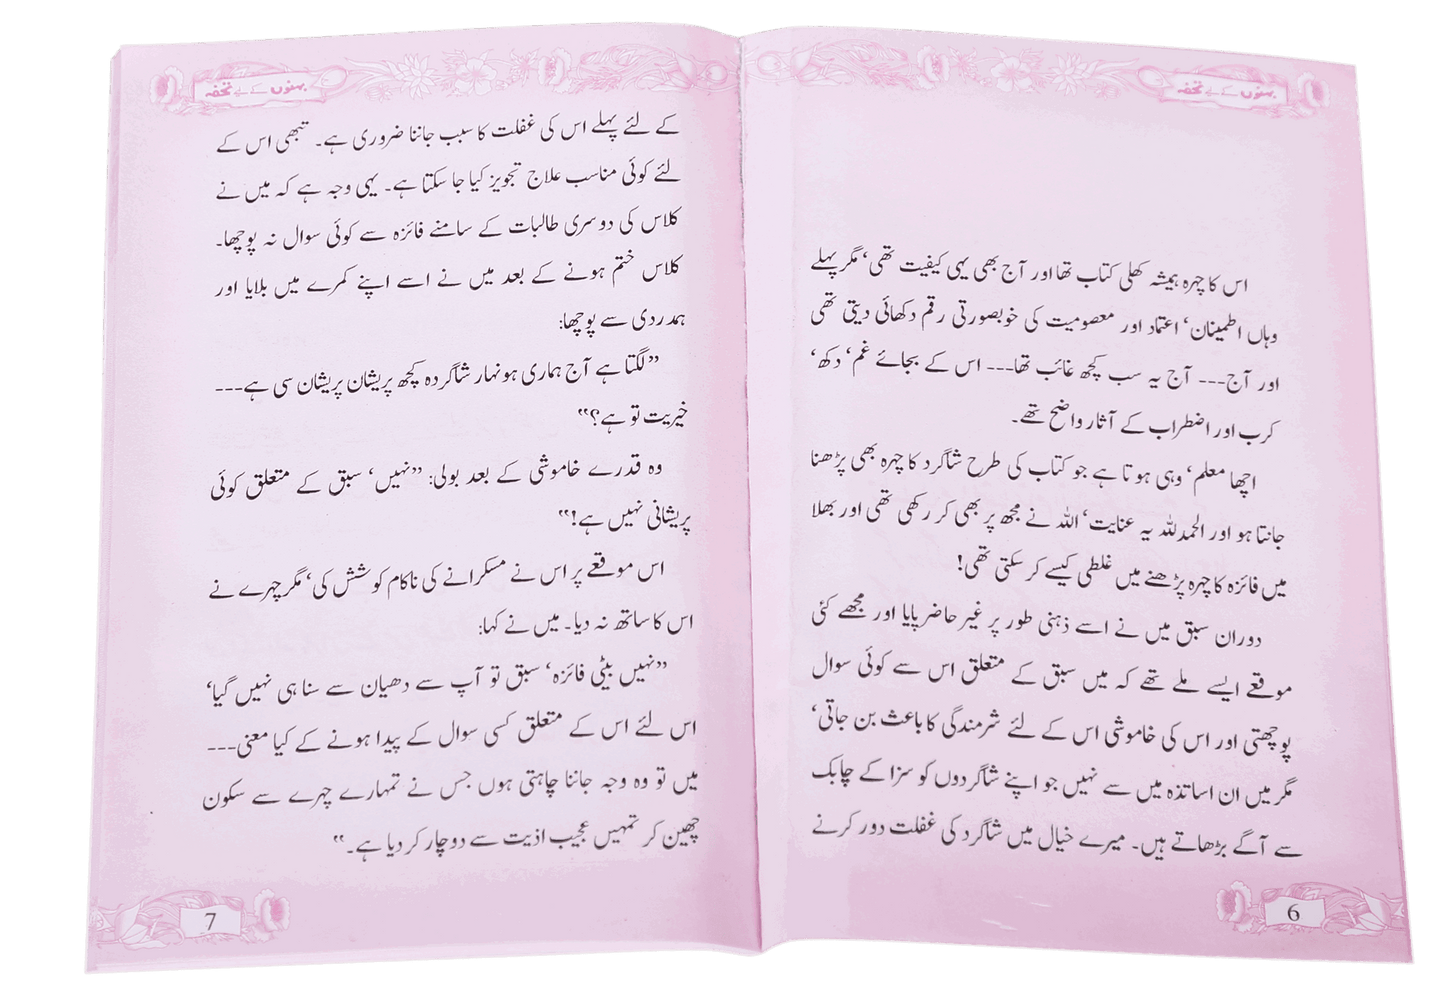 بہنوں کے لیے تحفہ
اس کا چہرہ ہمیشہ کھلی کتاب تھا اور آج بھی یہی کیفیت تھی‘ مگر پہلے
وہاں اطمینان‘ اعتماد اور معصومیت کی خوبصورتی رقم دکھائی دیتی تھی
اور آج--- آج یہ سب کچھ غائب تھا--- اس کے بجائے غم‘ دکھ‘
کرب اور اضطراب کے آثار واضح تھے۔
اچھا معلم‘ وہی ہو تا ہے جو کتاب کی طرح شاگرد کا چہرہ بھی پڑھنا
جانتا ہو اور الحمدللہ یہ عنایت‘ اللہ نے مجھ پر بھی کر رکھی تھی اور بھلا
میں فائزہ کا چہرہ پڑھنے میں غلطی کیسے کر سکتی تھی!
دوران سبق میں نے اسے ذہنی طور پر غیر حاضر پایا اور مجھے کئی
موقعے ایسے ملے تھے کہ میں سبق کے متعلق اس سے کوئی سوال
پوچھتی اور اس کی خاموشی اس کے لئے شرمندگی کا باعث بن جاتی‘
مگر میں ان اساتذہ میں سے نہیں جو اپنے شاگردوں کو سزا کے چابک
سے آگے بڑھاتے ہیں۔ میرے خیال میں شاگرد کی غفلت دور کرنے
6
بہنوں کے لیے تحفہ
کے لئے پہلے اس کی غفلت کا سبب جاننا ضروری ہے۔ تبھی اس کے
لئے کوئی مناسب علاج تجویز کیا جا سکتا ہے۔ یہی وجہ ہے کہ میں نے
کلاس کی دوسری طالبات کے سامنے فائزہ سے کوئی سوال نہ پوچھا۔
کلاس ختم ہونے کے بعد میں نے اسے اپنے کمرے میں بلایا اور
ہمدردی سے پوچھا:
”لگتا ہے آج ہماری ہونہار شاگردہ کچھ پریشان پریشان سی ہے---
خیریت تو ہے؟“
وہ قدرے خاموشی کے بعد بولی: ”نہیں‘ سبق کے متعلق کوئی
پریشانی نہیں ہے!“
اس موقعے پر اس نے مسکرانے کی ناکام کوشش کی‘ مگر چہرے نے
اس کا ساتھ نہ دیا۔ میں نے کہا:
”نہیں بیٹی فائزہ‘ سبق تو آپ سے دھیان سے سنا ہی نہیں گیا‘
اس لئے اس کے متعلق کسی سوال کے پیدا ہونے کے کیا معنی---
میں تو وہ وجہ جاننا چاہتی ہوں جس نے تمہارے چہرے سے سکون
چھین کر تمہیں عجیب اذیت سے دوچار کر دیا ہے۔“
7